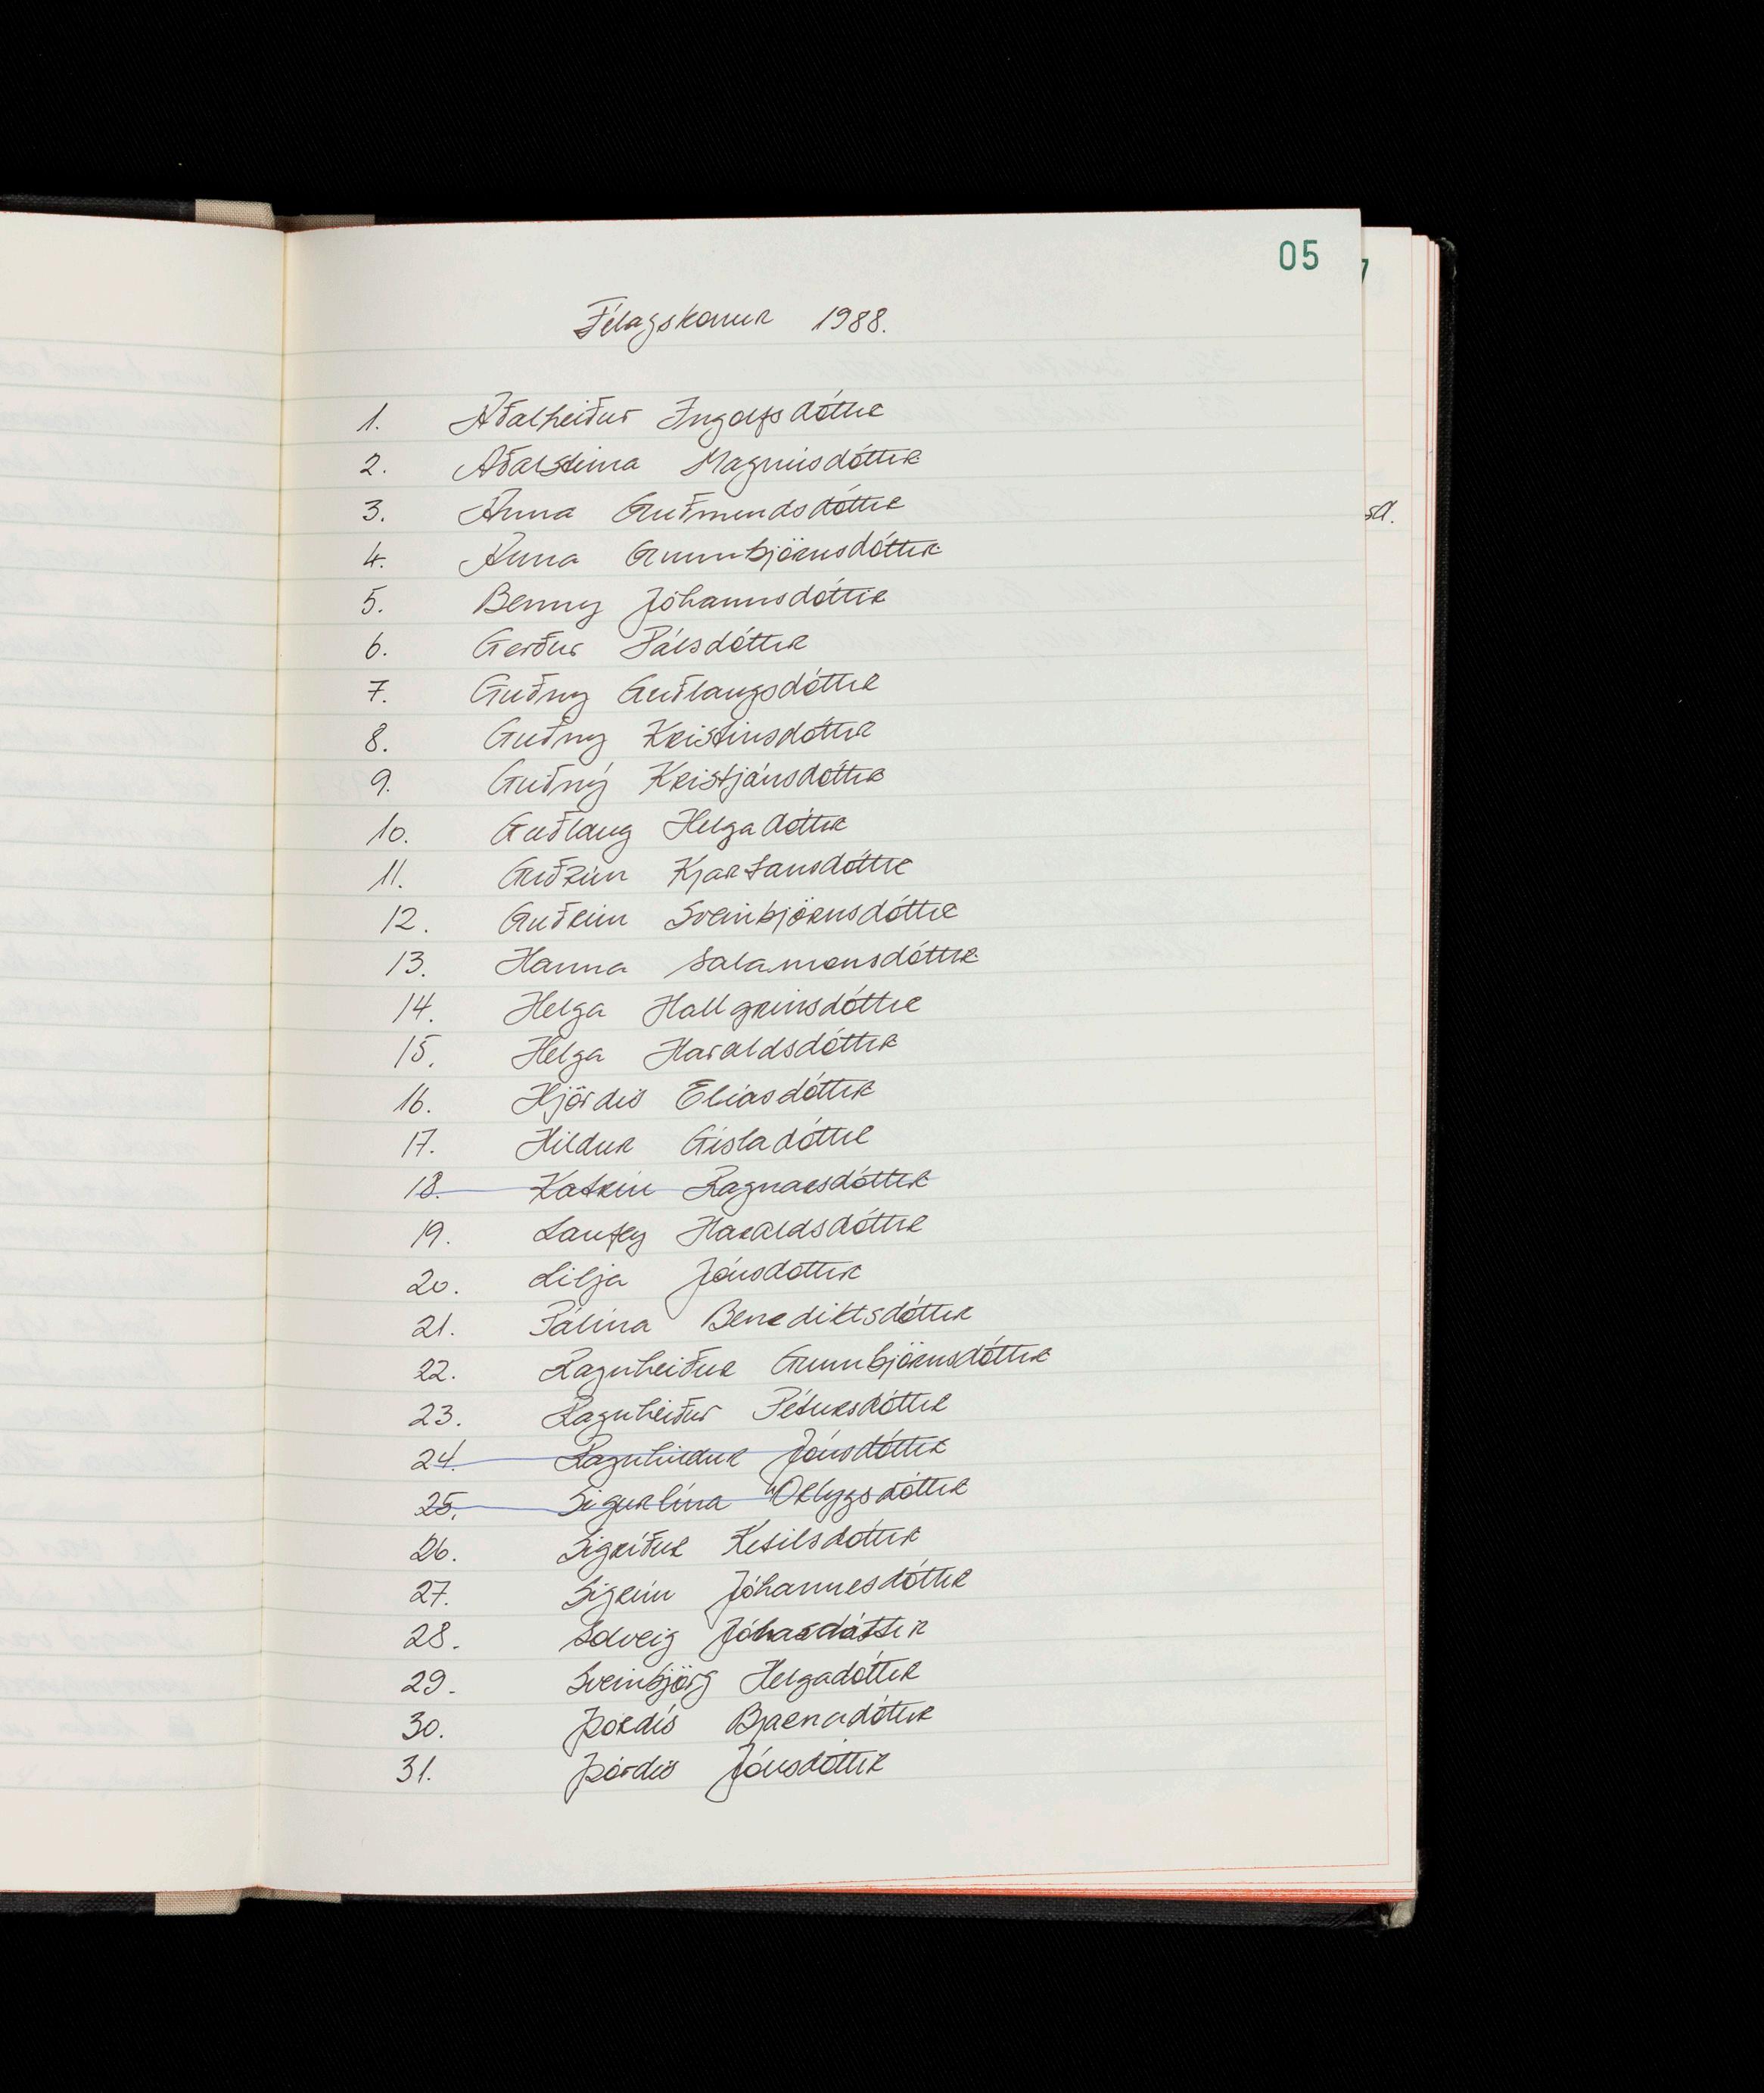 05
Félagskonur 1988.
1. Aðalheiður Ingolfsdóttir
2. Aðalsteina Magnúsdóttir
3. Anna Guðmundsdóttir
4. Anna Gunnbjörnsdóttir
5. Benny Jóhannsdóttir
6. Gerður Pálsdóttir
7. Guðny Guðlaugsdóttir
8. Guðny Kristinsdóttir
9. Guðný Kristjánsdóttir
10. Guðlaug Helgadóttir
11. Guðrún Kjartansdóttir
12. Guðrún Sveinbjörnsdóttir
13. Hanna Salamonsdóttir
14. Helga Hallgrímsdóttir
15. Helga Haraldsdóttir
16. Hjördis Elíasdóttir
17. Hildur Gísladóttir
18. Katrín Ragnarsdóttir
19. Laufey Haraldsdóttir
20. Lilja Jónsdóttir
21. Pálína Benediktsdóttir
22. Ragnheiður Gunnbjörnsdóttir
23. Ragnheiður Pétursdóttir
24. Ragnhildur Jónsdóttir
25. Sigurlína Örlygsdóttir
26. Sigríður Ketilsdóttir
27. Sigrún Jóhannesdóttir
28. Solveig
29. Sveinbjörg Helgadóttir
30. Þórdís Bjarnadóttir
31. Þórdís Jónsdóttir